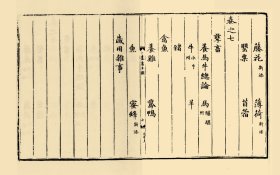 藤花 新添 薄荷 新添
罌粟 苜蓿
卷之七
孳畜
養馬牛總論 馬 驢騾附
牛 水牛附 羊
猪
禽魚
養雞 鵝鴨
魚 蜜蜂 新添
歲用雜事